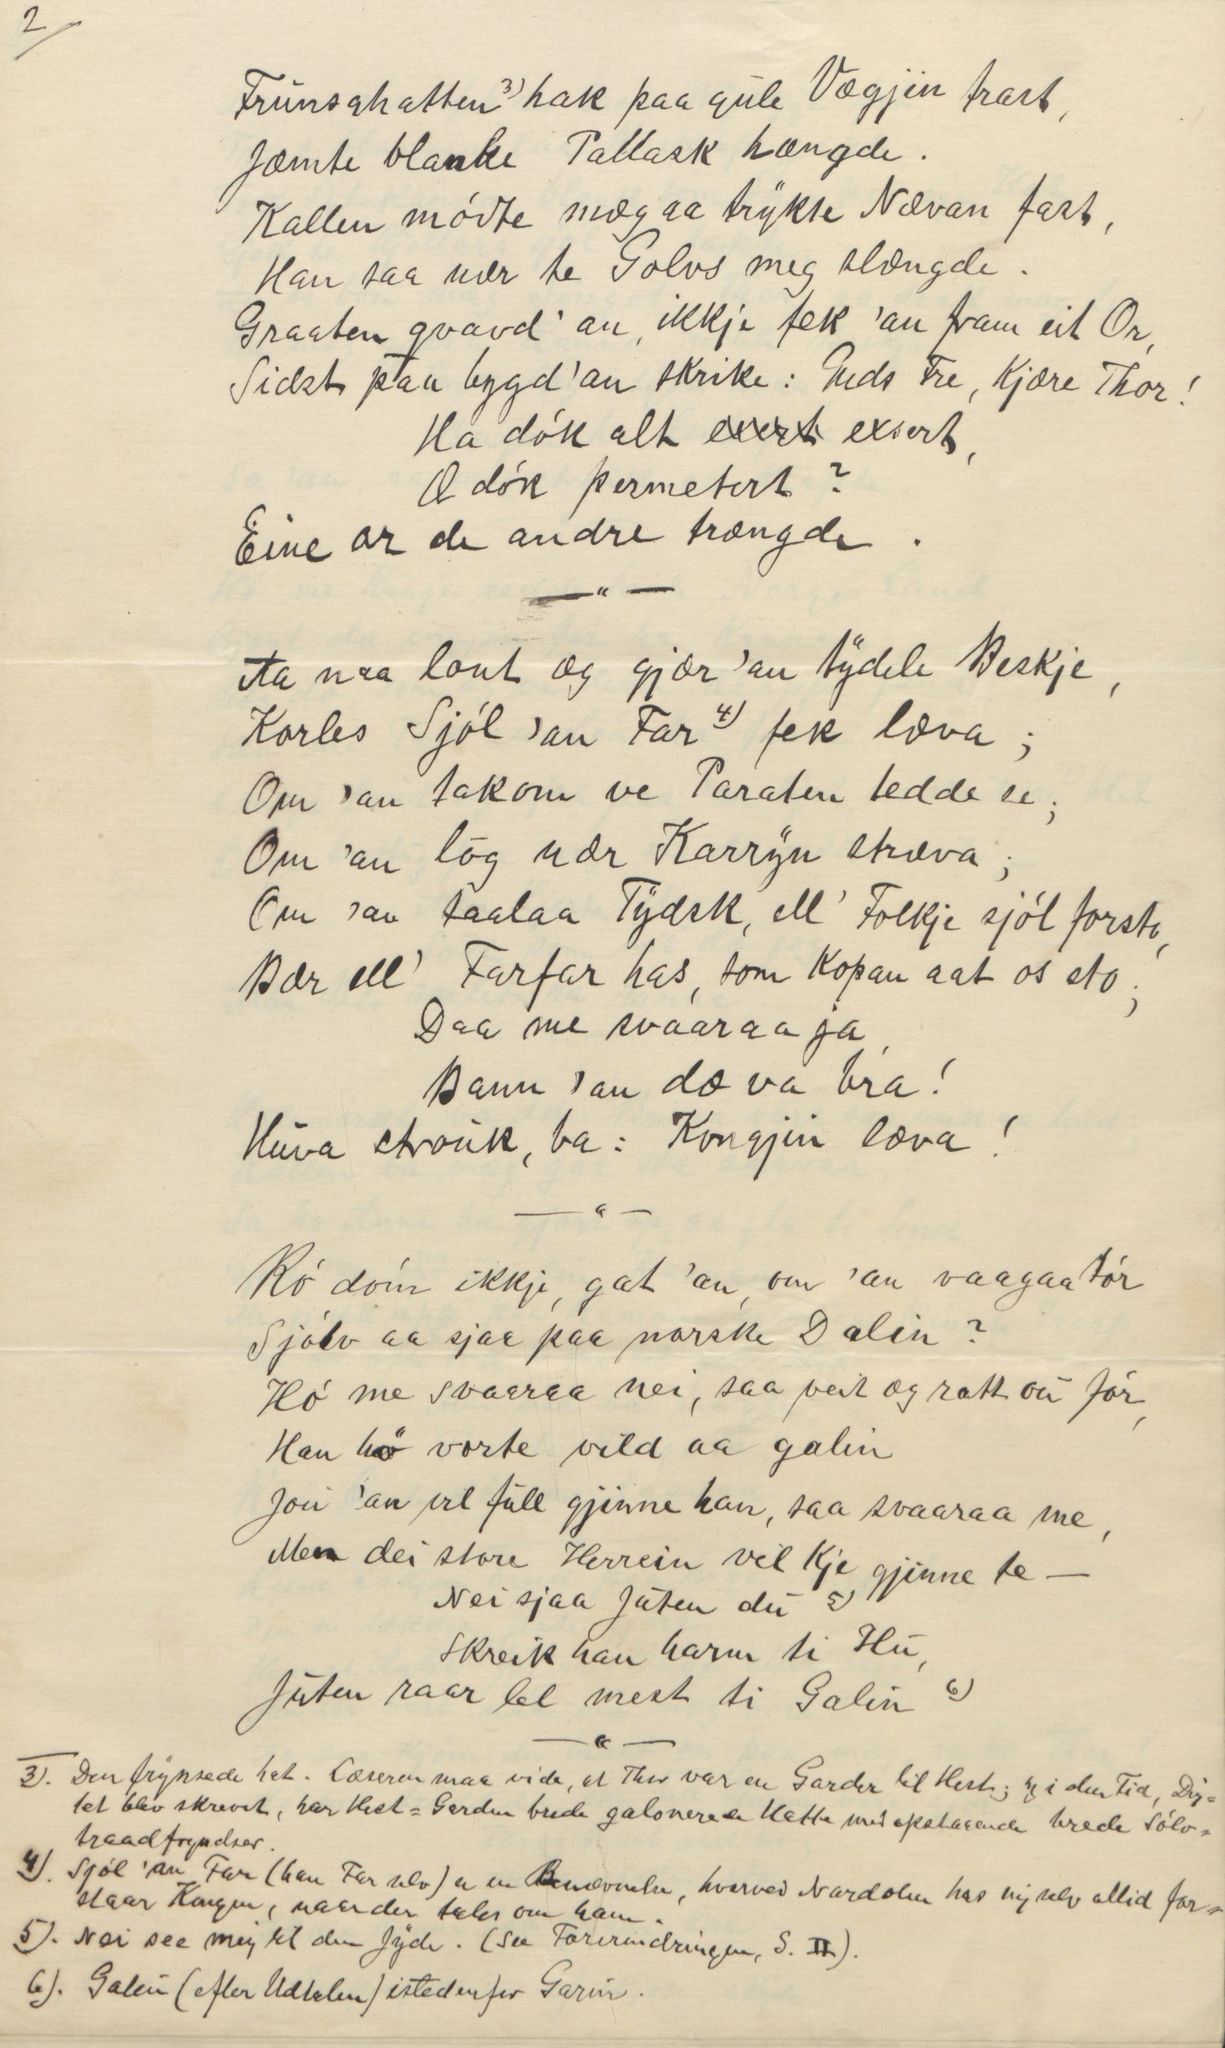 2
Frünsahatten 3) hak paa güle Vægjin trast,
Jæmte blanke Pallask hængde.
Kallen módte mæg aa trÿkte Nævan fast,
Han saa nær te Golvs meg slængde.
Graaten qvavd' an, ikkje fek 'an fram eit Or,
Sidst paa bygd'an skrike: Guds Fre, Kjære Thor!
Ha dók alt exert exsert,
Æ dók permetert?
Eine ær de andre trængde.
— " —
Ta naa lout æg gjær 'an tÿdele Beskje,
Korles Sjól 'an Far 4) fek læva;
Om 'an takom ve Paraten tedde se;
Om 'an lög nær Karrÿn stræva;
Om 'an taalaa Tÿdsk, ell' Folkje sjól forsto,
Bær ell' Farfar has, som Kopan aat os sto;
Daa me svaaraa ja,
Bann 'an dæ va bra!
Hüva strouk, ba: Kongjin læva!
— " —
Kó dóm ikkje, gat 'an, om 'an vaagaa tór
Sjólv aa sjaa paa norske Dalin?
Hó me svaaraa nei, saa veit æg ratt oü fór,
Han hö vorte vild aa galin
Joü 'an vel füll gjinne han, saa svaaraa me,
Men dei store Herrein vil kje gjinne te —
Nei sjaa Jüten dü 5)
Skreik han harm ti Hü,
Jüten raar lel mest ti Galin 6)
— " —
3). Den frynsede hat. Læseren maa vide, at Thor var en Garder til Hest; i den Tid, Dig=
tet blev skrevet, har Hest=Garden brede galonerede Hatte med opstaaende brede Sölv=
traadfryndser.
4). Sjól 'an Far (han Far selv) er en Benævnelse, hvorved Nordolen hos sig selv altid for=
staar Kongen, naar der tales om ham.
5). Nei see mig til den Jyde. (See Forerindringen, S. II).
6). Galin (efter Udtalen) istedenfor Garin.